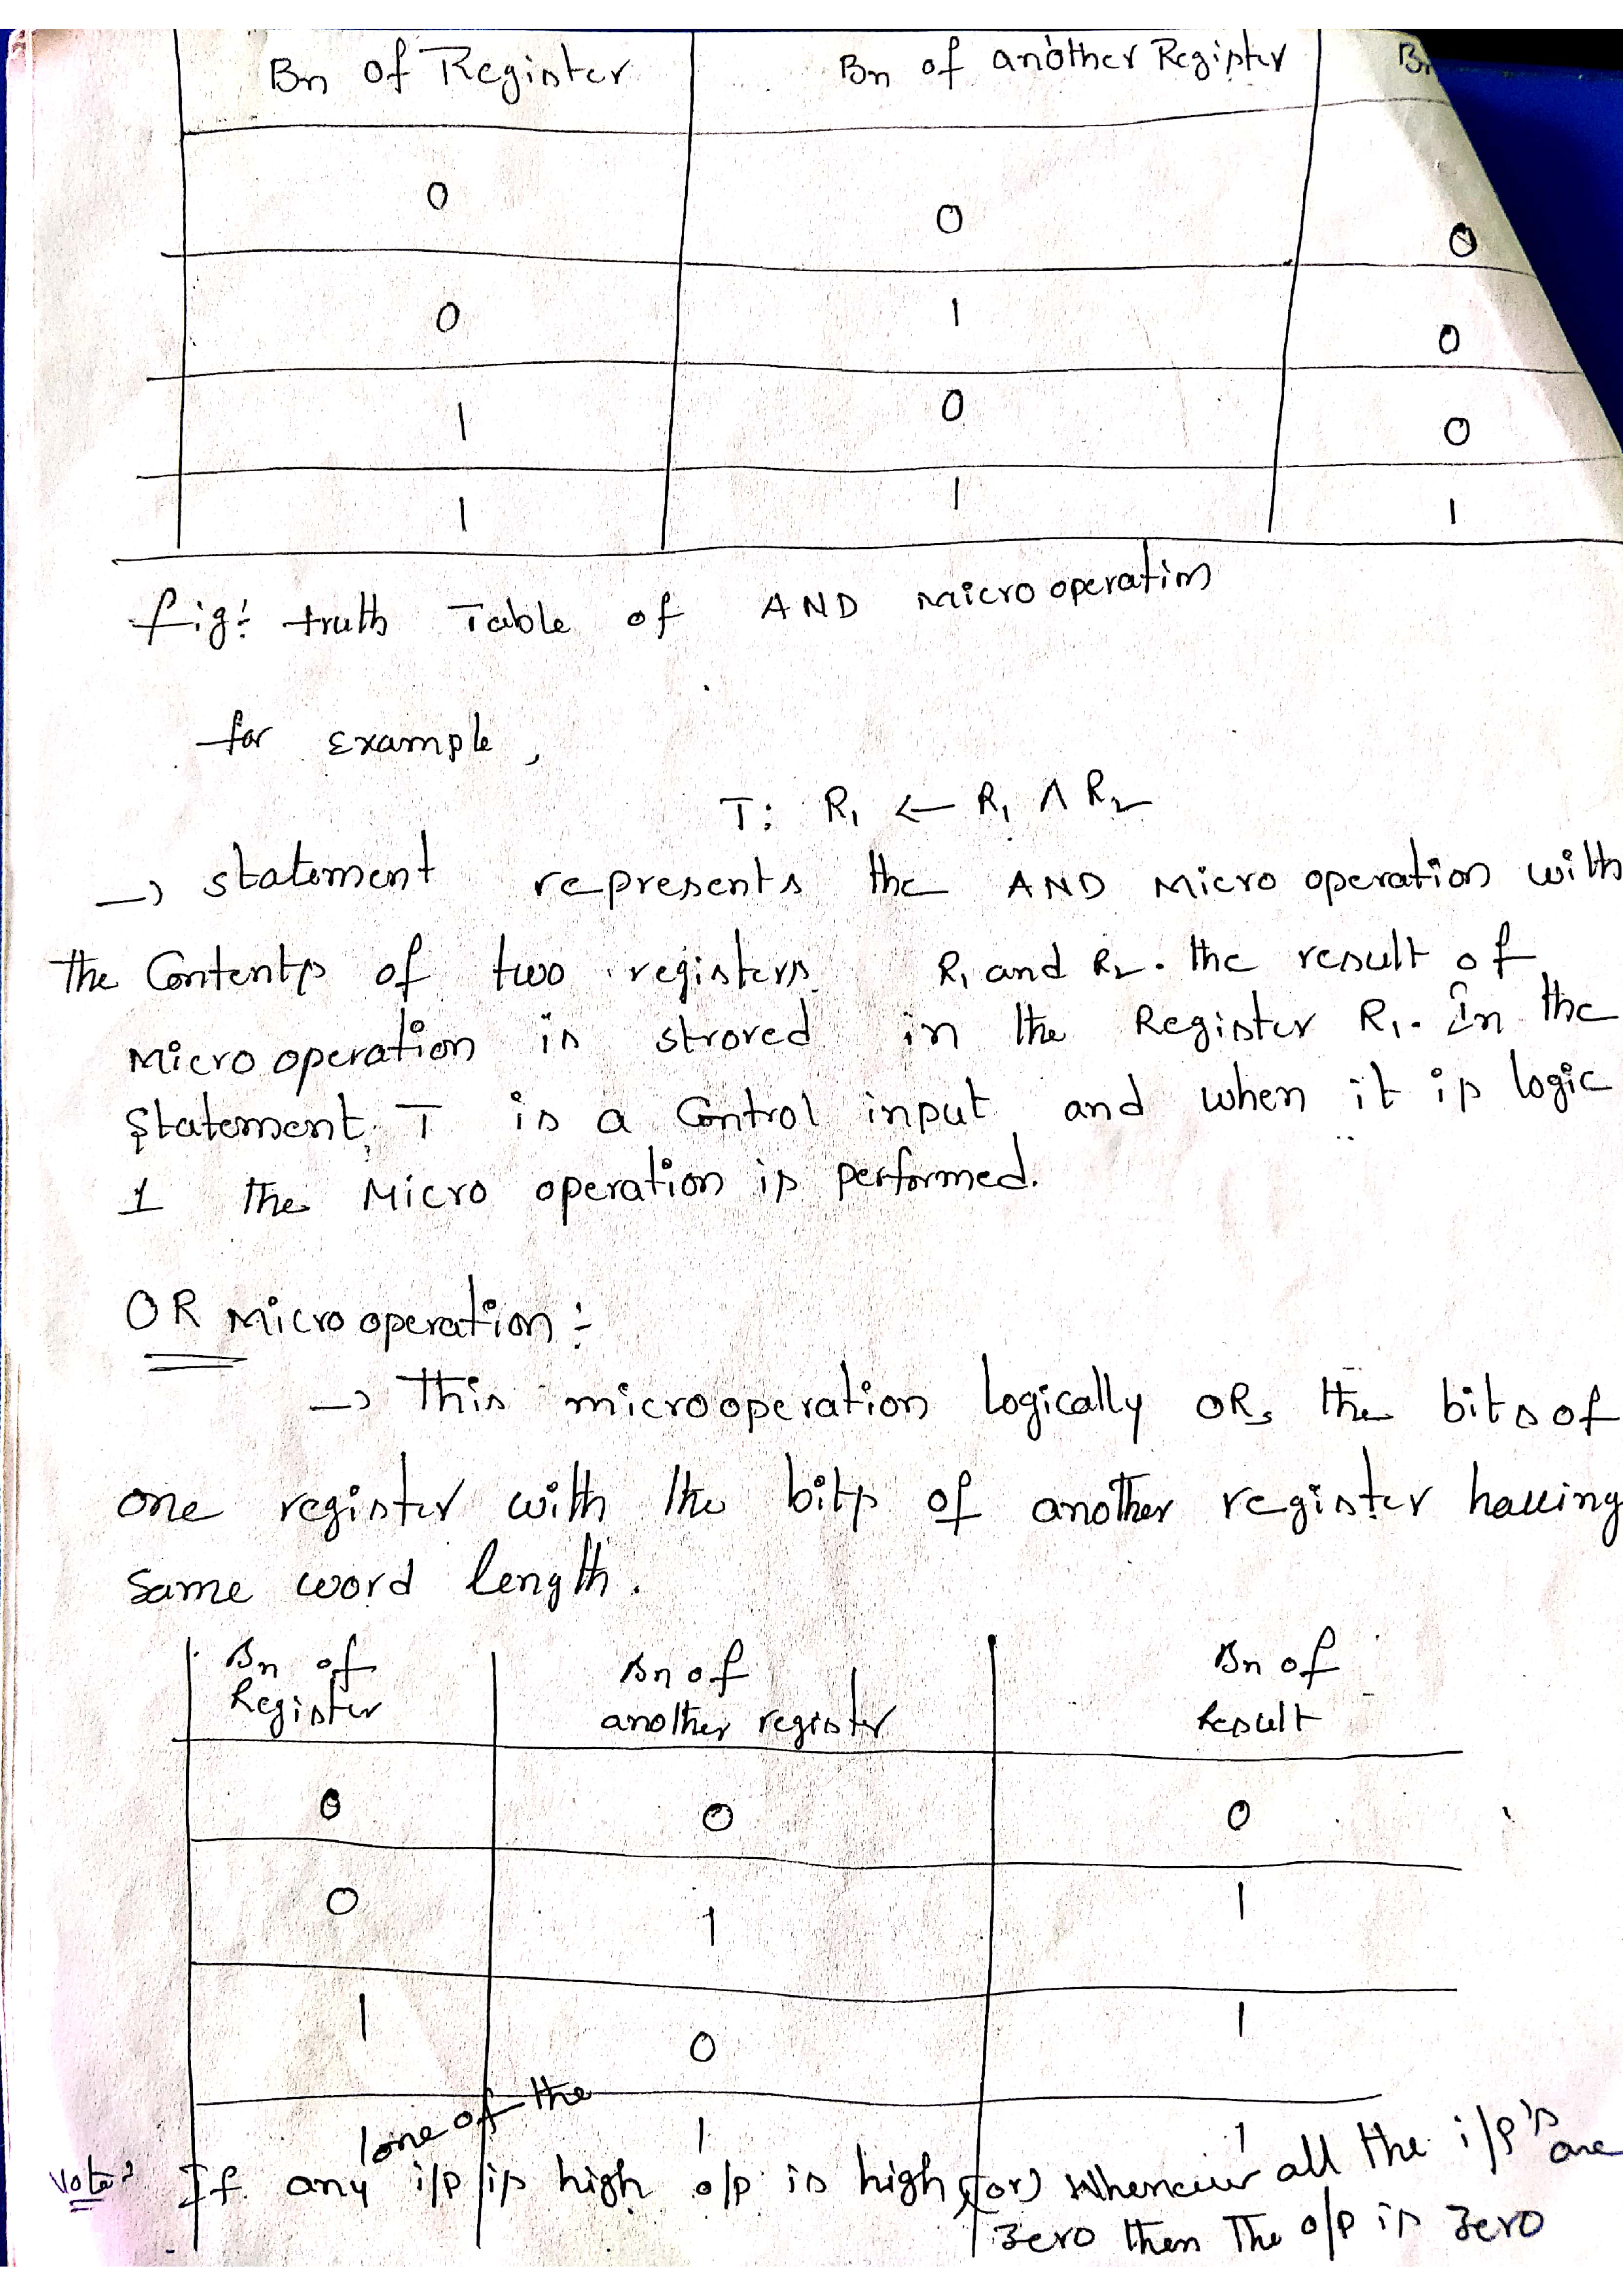 Bn of Register Bn of another Register B
0 0 0
0 1 0
1 0 0
1 1 1
fig: truth Table of AND micro operation
for example,
T: R₁ ← R₁ ∧ R₂
→ statement represents the AND Micro operation with
the Contents of two registers R₁ and R₂. the result of
Micro operation is stroved in the Register R₁. In the
Statement, T is a Control input and when it is logic
1 the Micro operation is performed.
OR Micro operation:-
→ This microoperation logically ORs the bits of
one register with the bits of another register having
Same word length.
Bn of Bn of Bn of
Register another register Result
0 0 0
0 1 1
1 0 1
1 1 1
one of the
Note: If any i/p is high o/p is high (or) Whenever all the i/p's are
zero then The o/p is zero